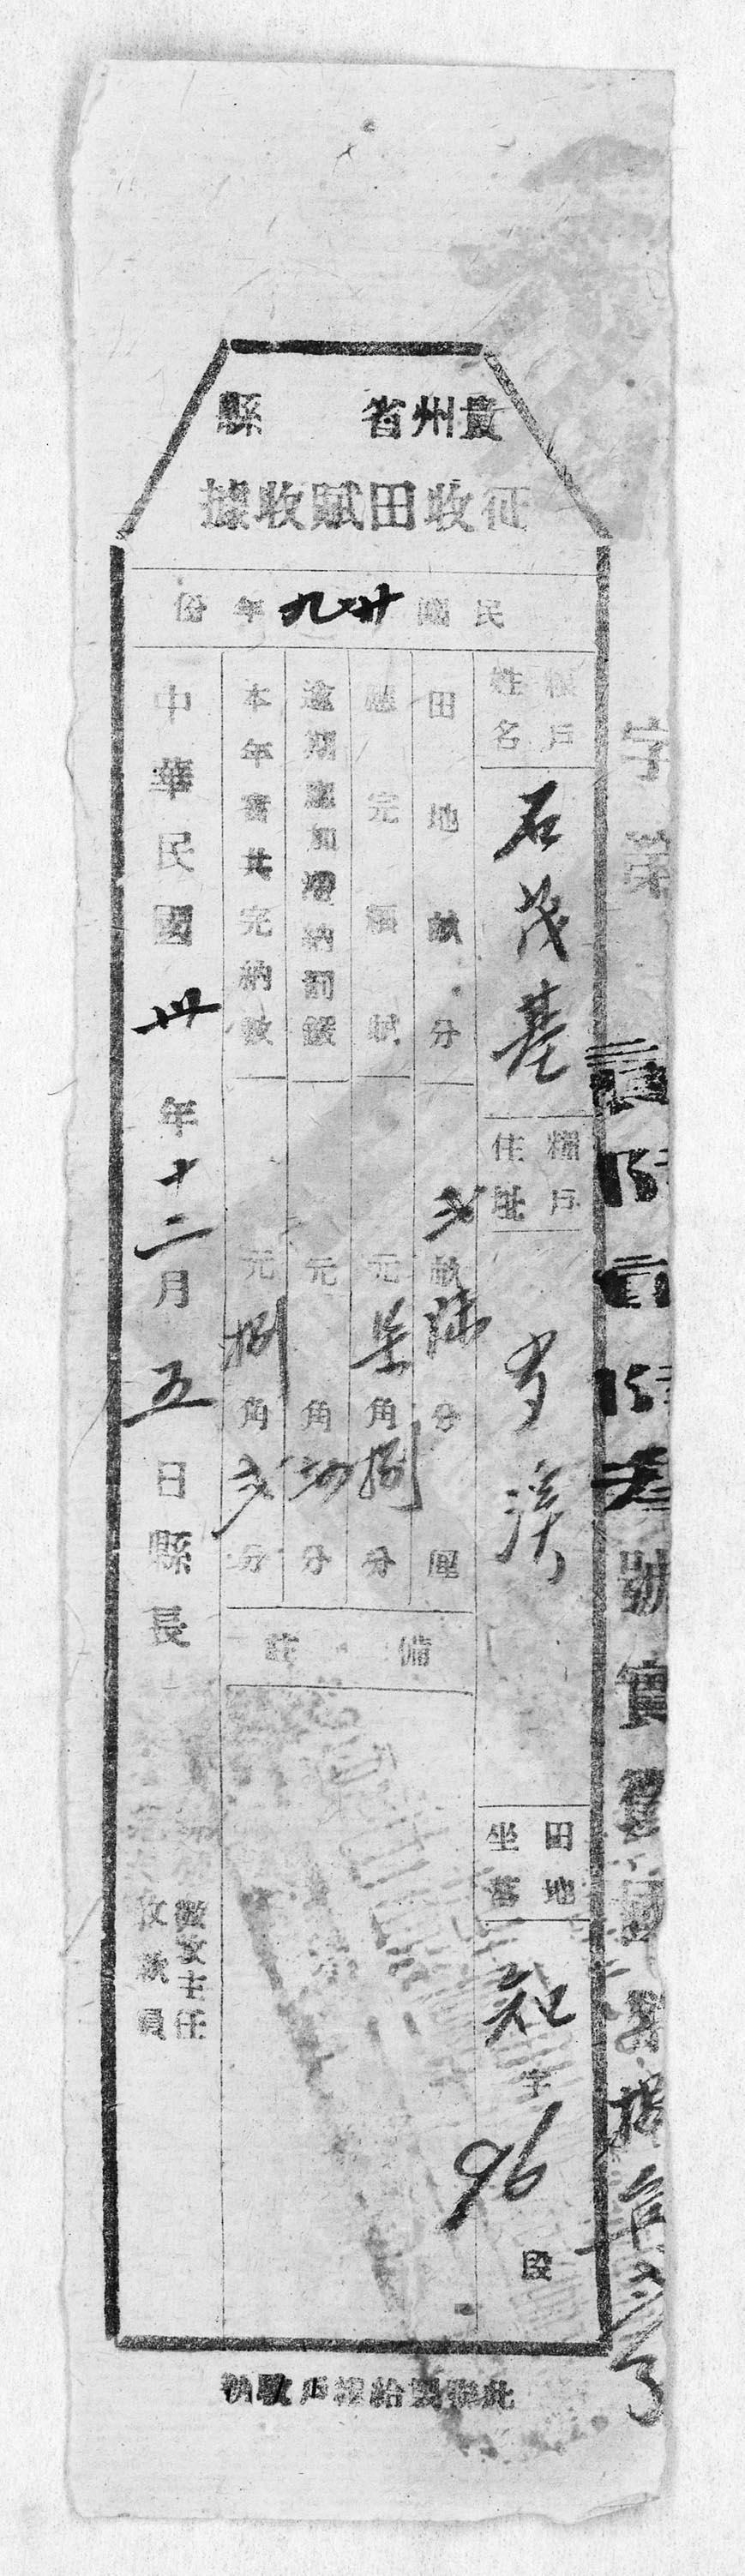 貴州省　縣
征收田賦收據
民國廿九年份
字第
號實征國幣捌角貳分
糧戶姓名
石茂基
糧戶住址
田地坐落
知字
96段
田地畝分
貳畝陸分 厘
應完額賦
元柒角捌分
逾期遞加滯納罰鍰
元 角 分
本年實共完納數
元捌角貳分
備註
中華民國卅年十二月五日縣長
徵收主任
收款員
此聯製給糧戶收執